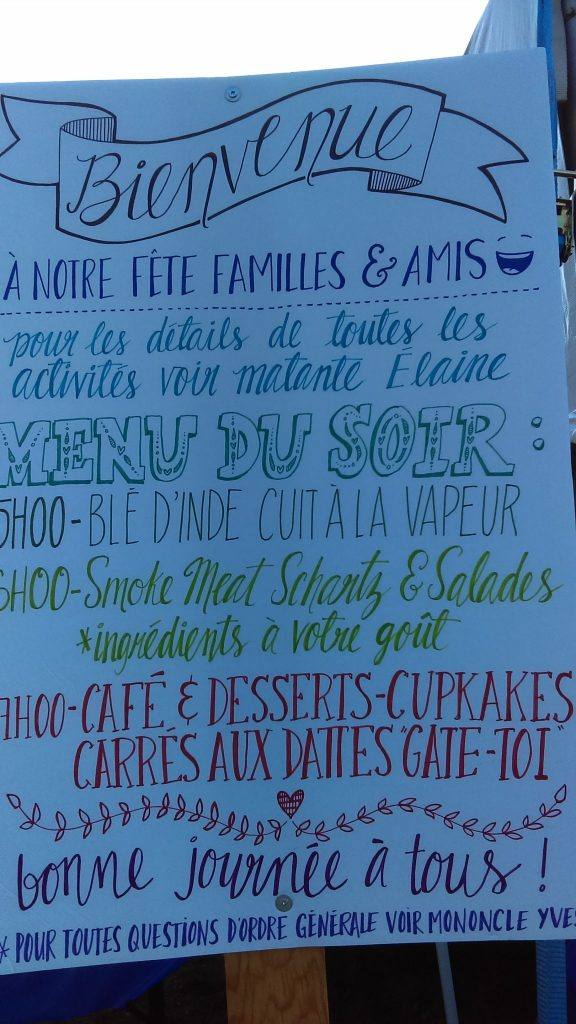 Bienvenue
À NOTRE FÊTE FAMILLES & AMIS
pour les détails de toutes les
activités voir matante Élaine
MENU DU SOIR :
5H00-BLÉ D'INDE CUIT À LA VAPEUR
6H00-Smoke Meat Schartz & Salades
*ingrédients à votre goût
7H00-CAFÉ & DESSERTS-CUPKAKES
CARRÉS AUX DATTES "GATE-TOI"
bonne journée à tous !
* POUR TOUTES QUESTIONS D'ORDRE GÉNÉRALE VOIR MONONCLE YVES